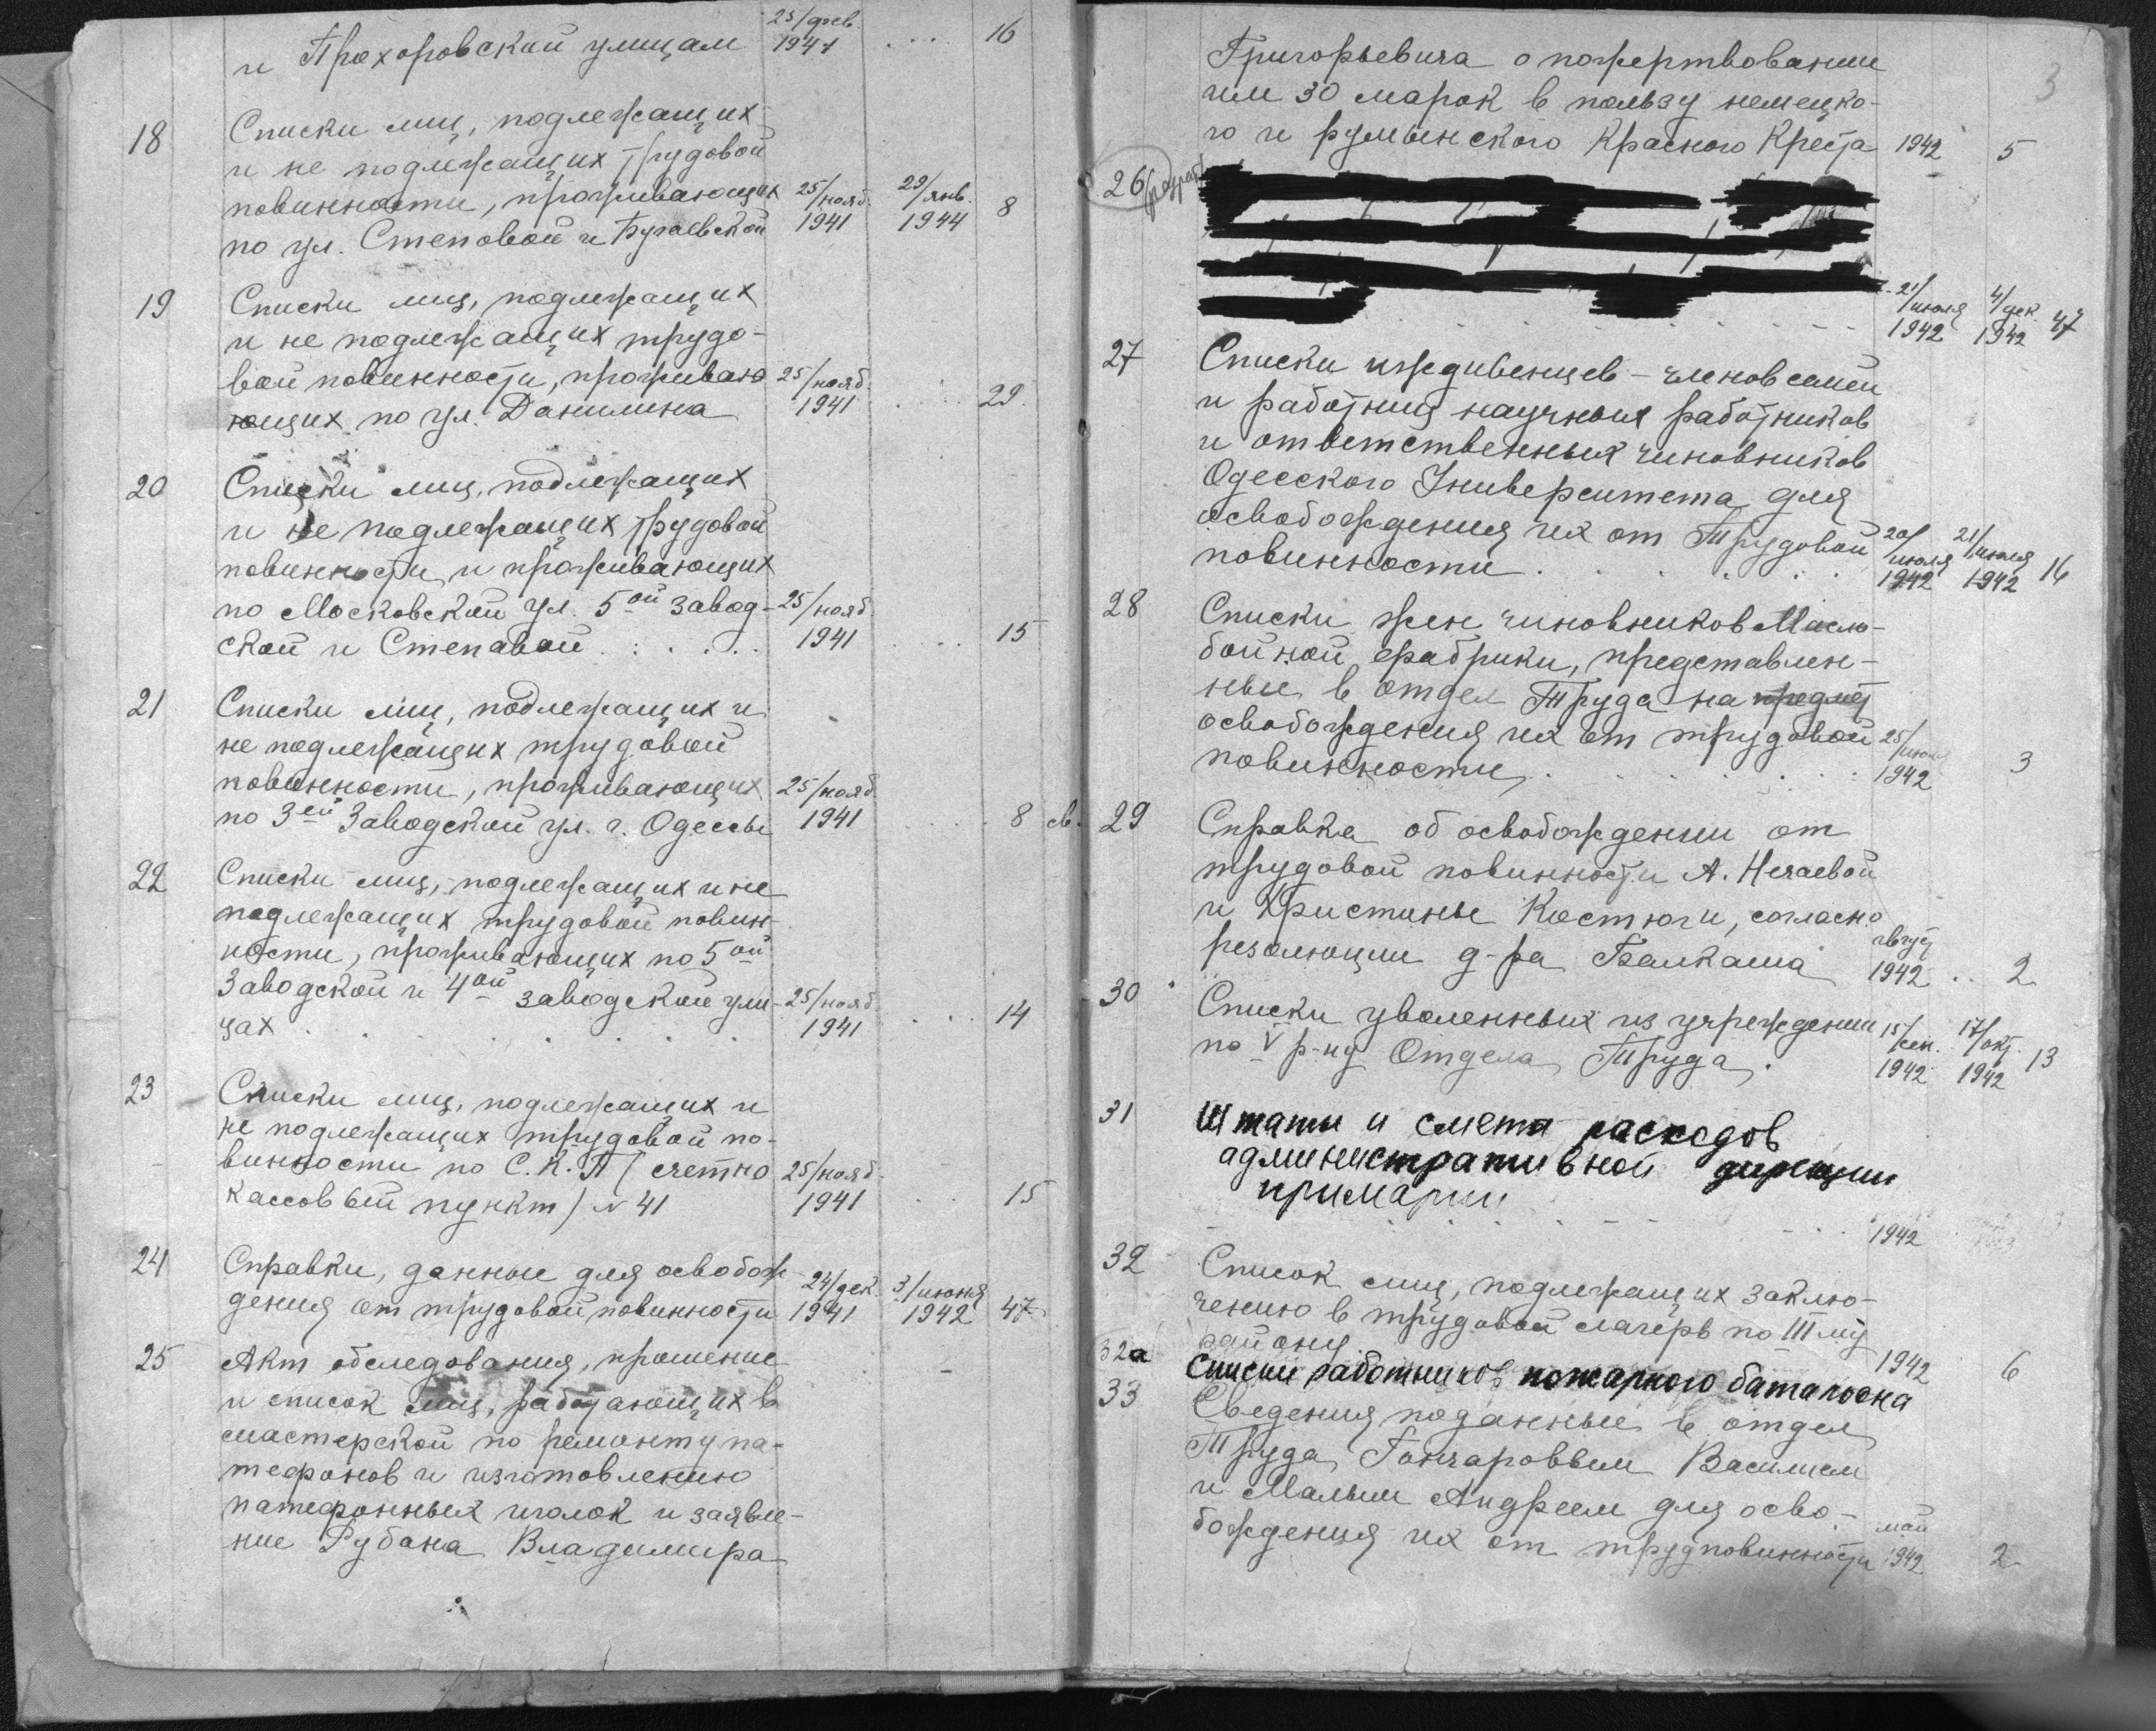 и Прохоровской улицам 25/фев. 1941 .... 16
18 Списки лиц, подлежащих
и не подлежащих трудовой
повинности, проживающих 25/нояб. 29/янв. 8
по ул. Степовой и Бугаевской 1941 1944
19 Списки лиц, подлежащих
и не подлежащих трудо-
вой повинности, проживаю 25/нояб.
ющих по ул. Данилина 1941 .... 29
20 Списки лиц, подлежащих
и не подлежащих трудовой
повинности и проживающих
по Московской ул. 5ой Завод- 25/нояб
ской и Степовой ...... 1941 .... 15
21 Списки лиц, подлежащих и
не подлежащих трудовой
повинности, проживающих 25/нояб.
по 3ей Заводской ул. г. Одессы 1941 .... 8 св.
22 Списки лиц, подлежащих и не
подлежащих трудовой повин-
ности, проживающих по 5ой
Заводской и 4ой заводской ули- 25/нояб
цах ...... 1941 .... 14
23 Списки лиц, подлежащих и
не подлежащих трудовой по-
винности по С.К.П (счетно 25/нояб.
кассовый пункт) № 41 1941 ... 15
24 Справки, данные для освобож- 24/дек. 3/июня
дения от трудовой повинности 1941 1942 47
25 Акт обследования, прошение
и список лиц, работающих в
мастерской по ремонту па-
тефонов и изготовлению
патефонных иголок и заявле-
ние Рубана Владимира
3
Григорьевича о пожертвовании
им 30 марок в пользу немецко-
го и румынского Красного Креста 1942 5
26
21/июля 4/дек. 47
1942 1942
27 Списки иждивенцев - членов семей
и работниц научных работников
и ответственных чиновников
Одесского Университета для
освобождения их от Трудовой 20/июля 21/июля
повинности ...... 1942 1942 16
28 Списки жен чиновников Масло-
бойной фабрики, представлен-
ные в отдел Труда на предмет
освобождения их от трудовой 25/
повинности ...... 1942 3
29 Справка об освобождении от
трудовой повинности А. Нечаевой
и Кристины Костюги, согласно
резолюции д-ра Балкаша август 1942 .. 2
30 Списки уволенных из учреждений 15/сен. 17/окт.
по V р-ну Отдела Труда. 1942 1942 13
31 Штаты и смета расходов
административной дирекции
примарии
1942
32 Список лиц, подлежащих заклю-
чению в трудовой лагерь по III му
району 1942 6
32а Списки работников пожарного баталиона
33 Сведения поданные в отдел
Труда Гончаровым Василием
и Малым Андреем для осво-
бождения их от трудповинности май 1942 2